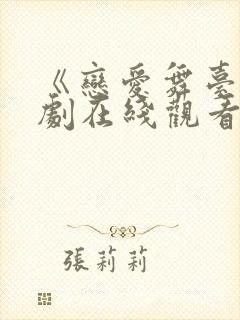 《戀愛舞臺
劇在綫觀看
張莉莉